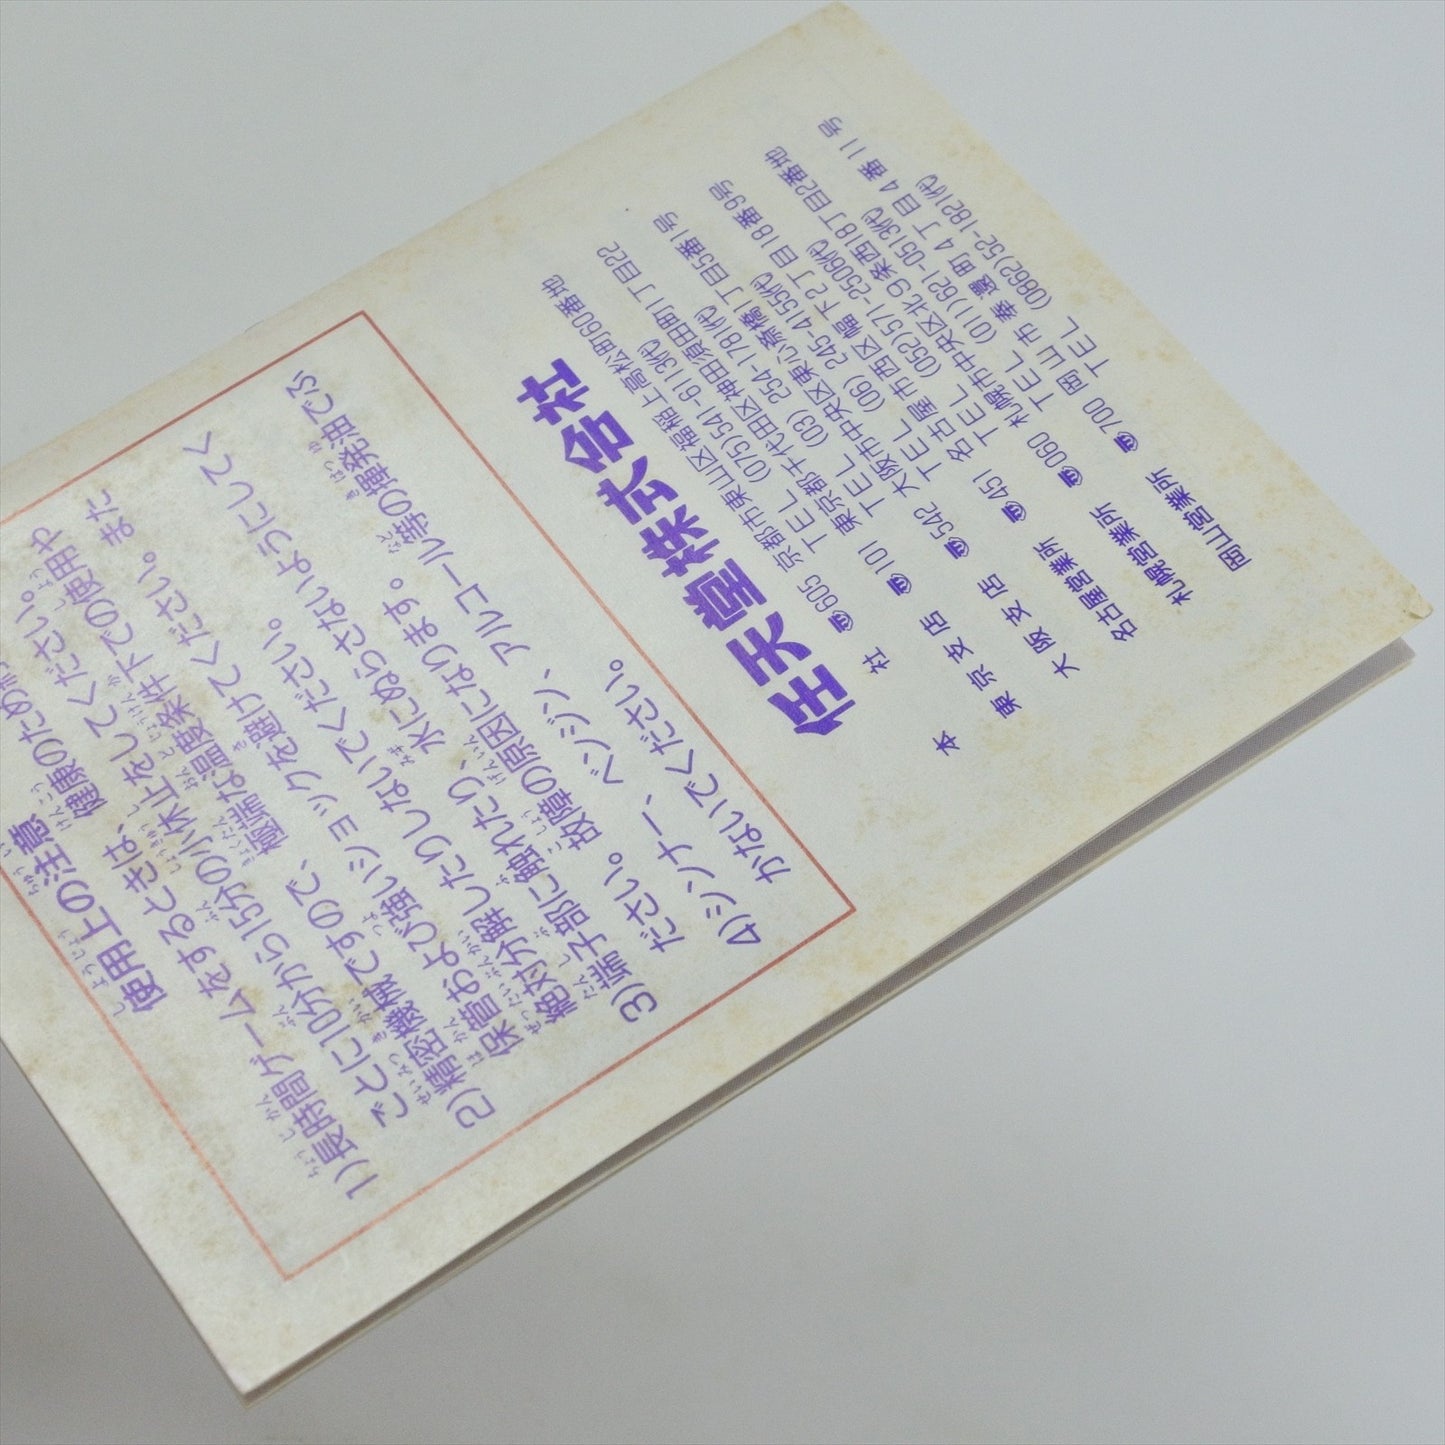 使用上の注意
1)長時間ゲームをするときは、健康のため
ごとに10分から15分の小休止をしてください。
2)精密機械ですので、極端な温度条件下での使用や
保管および強いショックを避けてください。また
絶対分解したりしないでください。
3)端子部に触れたり、水にぬらさないようにしてく
ださい。故障の原因になります。
4)シンナー、ベンジン、アルコール等の揮発油でふ
かないでください。
任天堂株式会社
本社 〒605 京都市東山区福稲上高松町60番地
TEL (075)541-6113(代)
東京支店 〒101 東京都千代田区神田須田町1丁目22
TEL (03) 254-1781(代)
大阪支店 〒542 大阪市中央区東心斎橋1丁目5番1号
TEL (06) 245-4155(代)
名古屋営業所 〒451 名古屋市西区幅下2丁目18番9号
TEL (052)571-2506(代)
札幌営業所 〒060 札幌市中央区北9条西18丁目2番地
TEL (011)621-0513(代)
岡山営業所 〒700 岡山市奉還町4丁目4番11号
TEL (0862)52-1821(代)